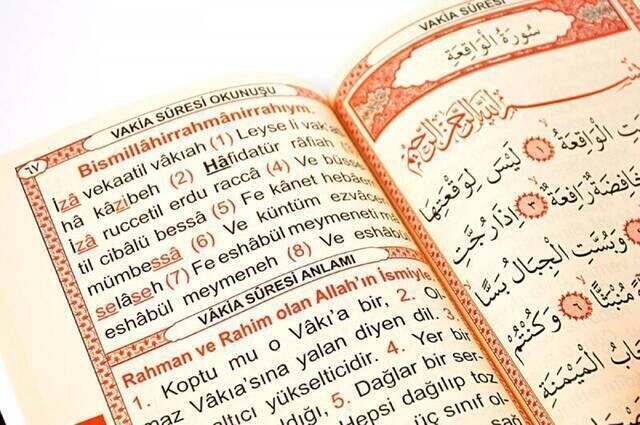 VAKİA SÛRESİ OKUNUŞU
٦٧
Bismillâhirrahmânirrahıym.
İzâ vekaatil vâkıah (1) Leyse li vak'a
hâ kâzibeh (2) Hâfidatür râfiah
İzâ ruccetil erdu raccâ (4) Ve büsse
til cibâlü bessâ (5) Fe kânet hebâen
mümbessâ (6) Ve küntüm ezvâcen
selâseh (7) Fe eshâbül meymeneti ma
eshâbül meymeneh (8) Ve eshâbü
VÂKİA SÛRESİ ANLAMI
Rahman ve Rahim olan Allah'ın İsmiyle
1. Koptu mu o Vâkı'a bir, 2. Ol-
maz Vâkıa'sına yalan diyen dil. 3.
altıcı yükselticidir. 4. Yer bir
ldığı, 5. Dağlar bir ser-
Hepsi dağılıp toz
üç sınıf ol-
sağ
VAKİA SÛRESİ
سُورَةُ الْوَاقِعَةِ
بِسْمِ اللّٰهِ الرَّحْمٰنِ الرَّحِيمِ
الْوَاقِعَةُ ١ لَيْسَ لِوَقْعَتِهَا
خَافِضَةٌ رَافِعَةٌ ٣ إِذَا رُجَّتِ
وَبُسَّتِ الْجِبَالُ بَسًّا
مُنْبَثًّا ٦ وَكُنْتُمْ
الْمَيْمَنَةِ